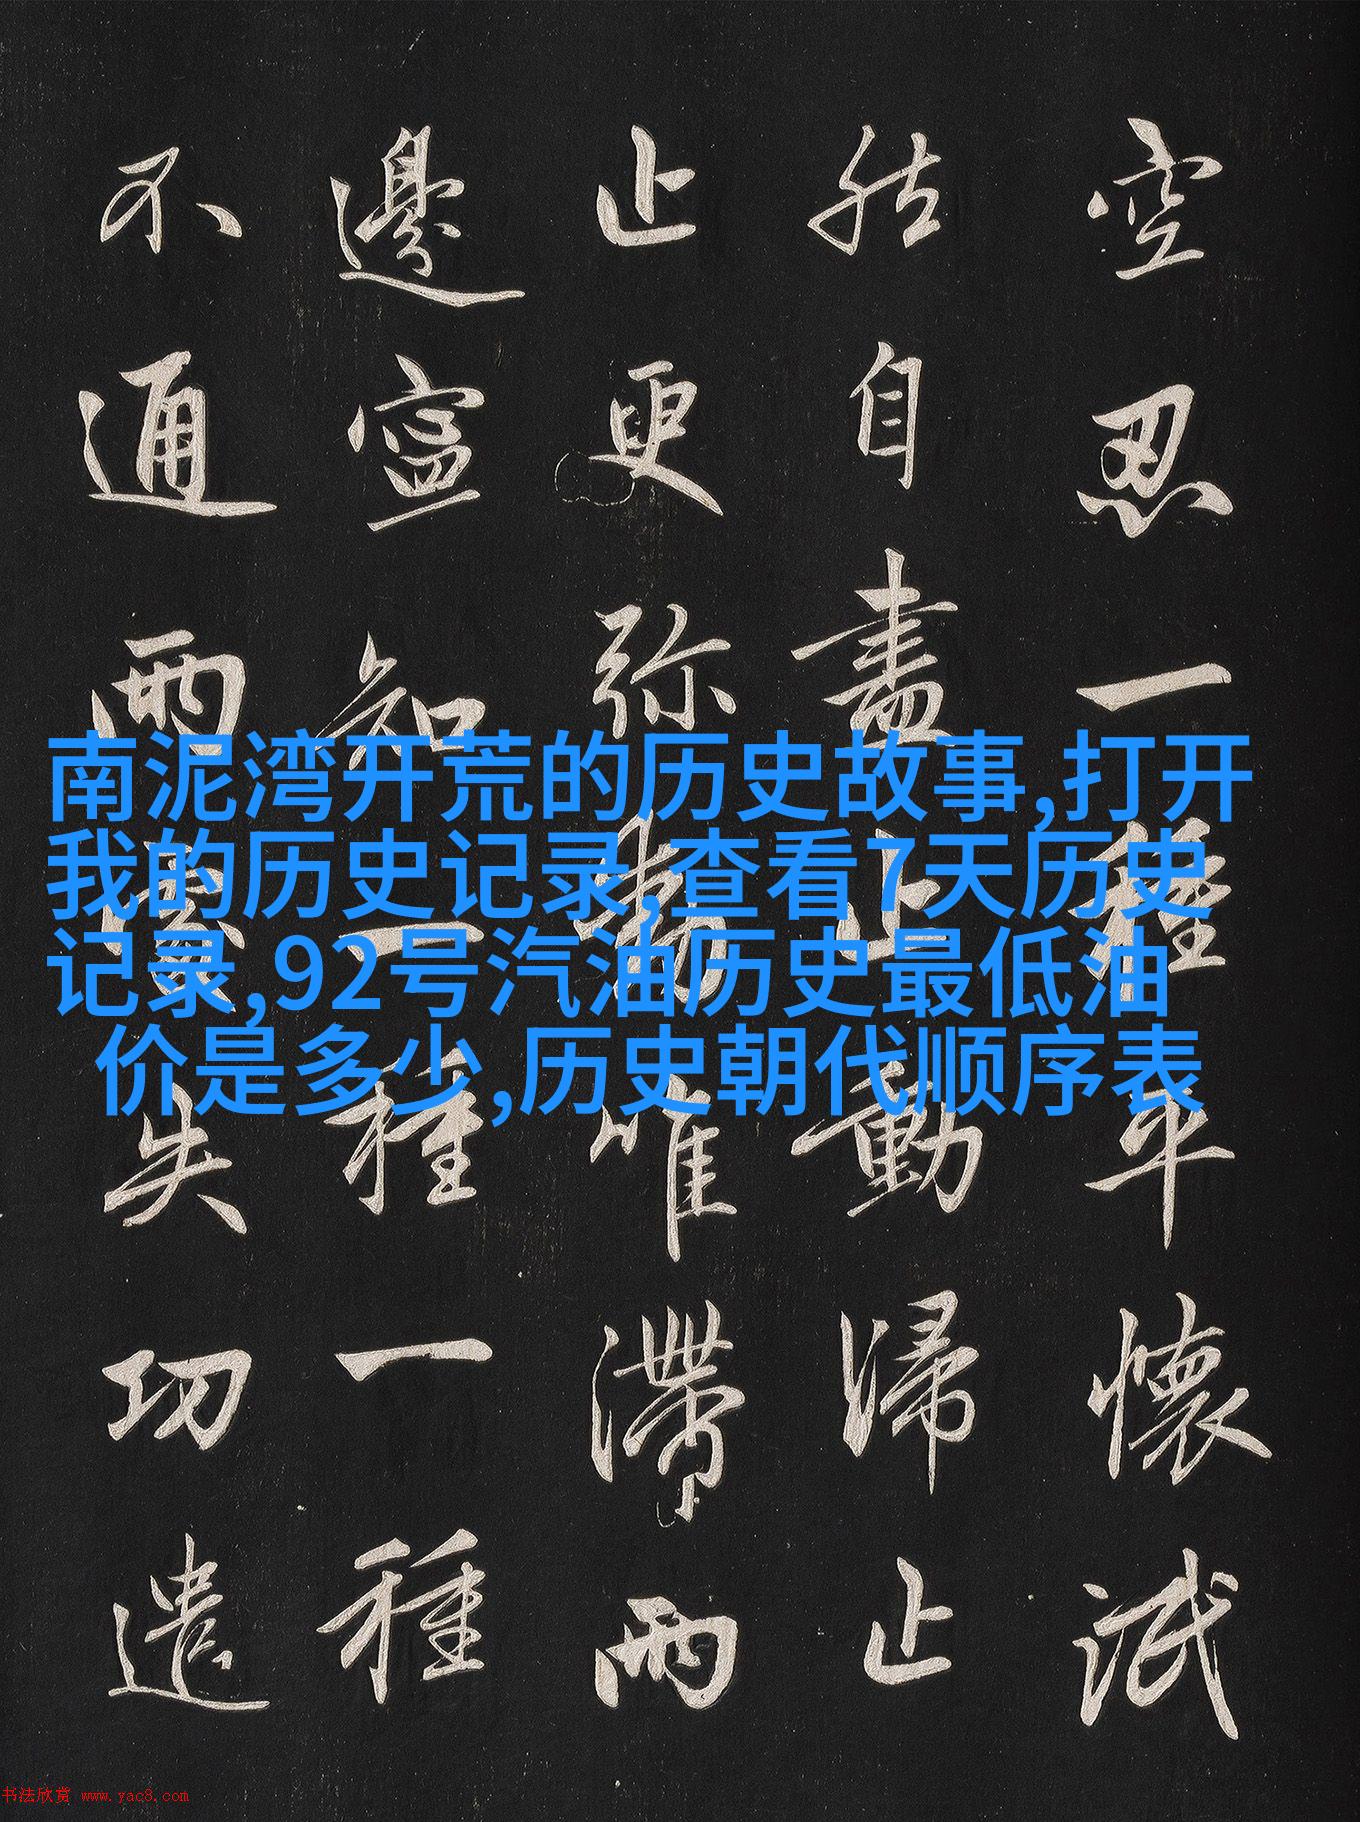 空忍一種平懷泯
然自盡止動歸止
止更彌動唯滯兩
邊寧知一種一種
不通兩處失功遣
南泥湾开荒的历史故事,打开
我的历史记录,查看7天历史
记录,92号汽油历史最低油
价是多少,历史朝代顺序表
书法欣赏 www.yac8.com